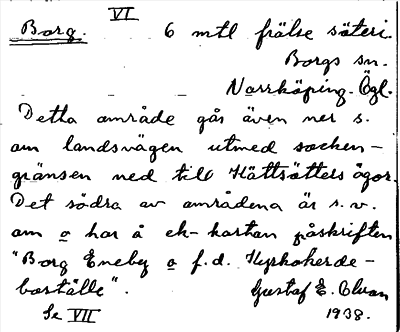 VI
Borg. 6 mtl frälse säteri.
Borgs sn.
Norrköping. Ögl.
Detta område går även ner s.
om landsvägen utmed socken-
gränsen ned till Hättsätters ägor.
Det södra av områdena är s.v.
om o har å ek-kartan påskriften
"Borg Eneby o f.d. Kyrkoherde-
boställe". Gustaf E.
Se VII 1938.